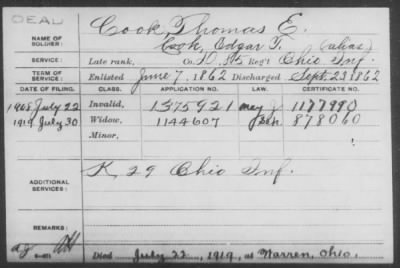 DEAL
NAME OF SOLDIER: Cook, Thomas E.
Cook, Edgar T. (alias)
SERVICE: Late rank, Co. D. 85 Reg't Ohio Inf.
TERM OF SERVICE: Enlisted June 7, 1862 Discharged Sept. 23 1862
DATE OF FILING. CLASS. APPLICATION NO. LAW. CERTIFICATE NO.
1908 July 22 Invalid, 1375921 May 1177990
1919 July 30 Widow, 1144607 878060
Minor,
ADDITIONAL SERVICES: K 29 Ohio Inf.
REMARKS:
Died July 22, 1919, at Warren, Ohio.